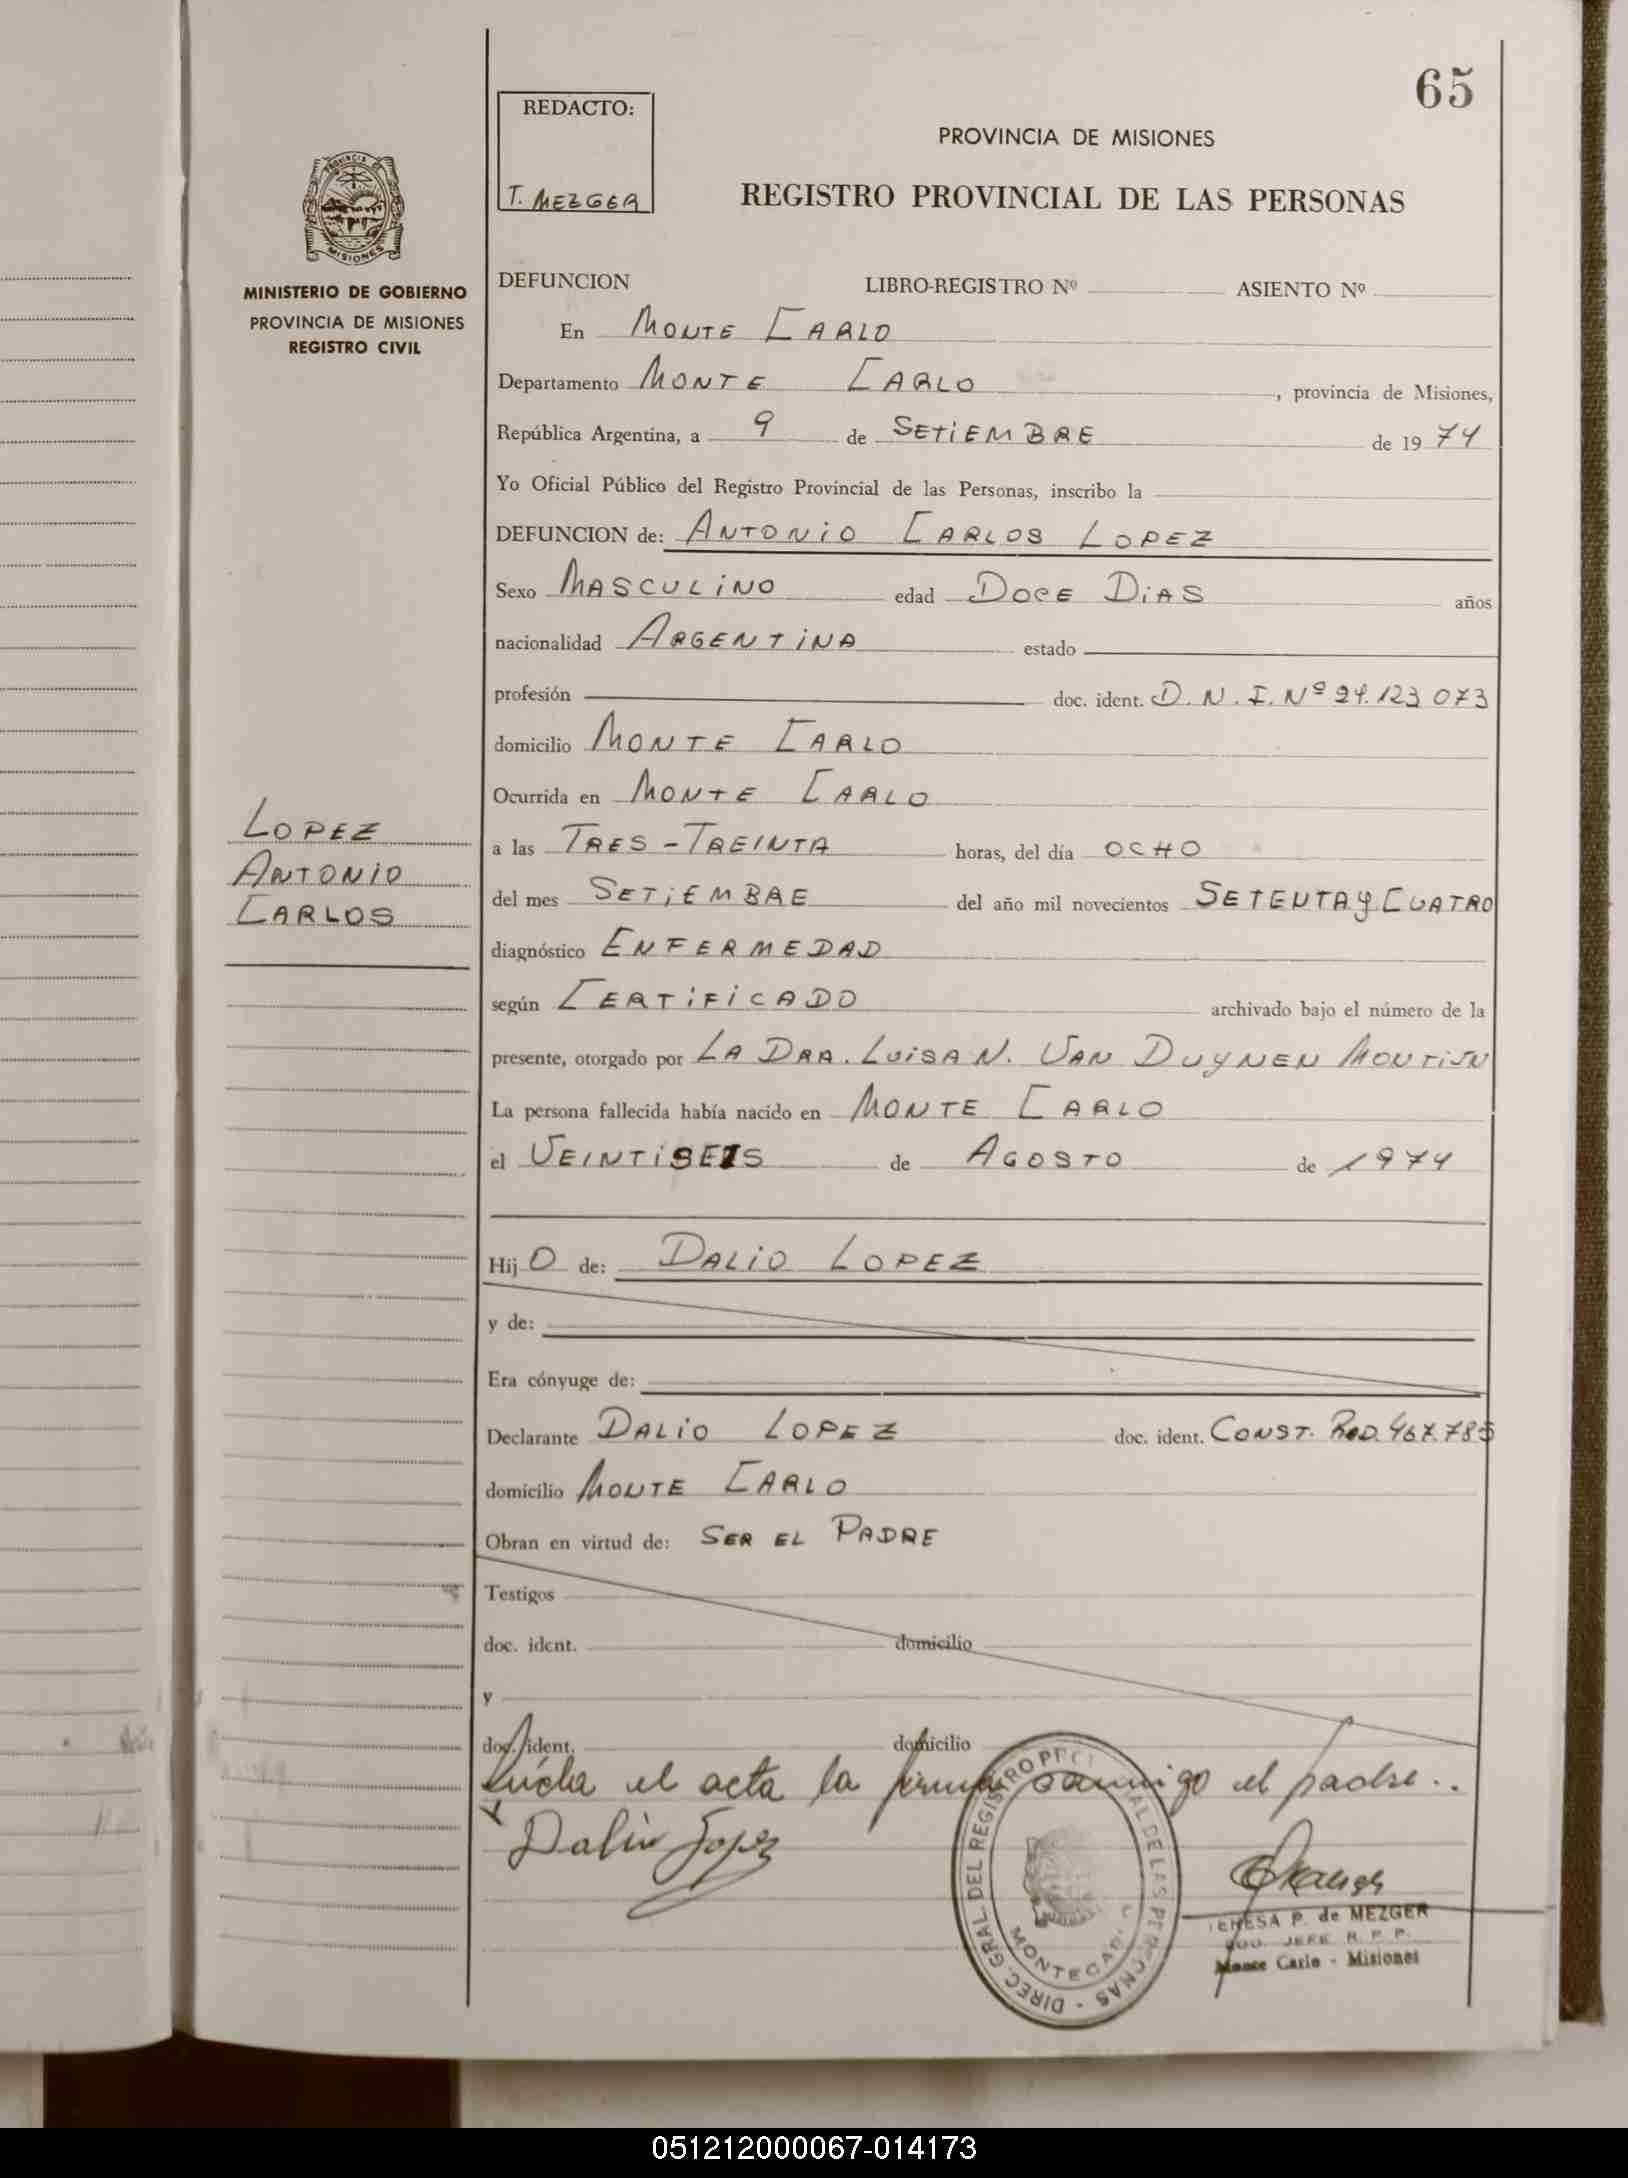 65
REDACTO:
T. MEZGER
PROVINCIA DE MISIONES
REGISTRO PROVINCIAL DE LAS PERSONAS
PROVINCIA DE
MISIONES
MINISTERIO DE GOBIERNO
PROVINCIA DE MISIONES
REGISTRO CIVIL
DEFUNCION LIBRO-REGISTRO Nº ASIENTO Nº
En MONTE CARLO
Departamento MONTE CARLO, provincia de Misiones,
República Argentina, a 9 de SETIEMBRE de 1974
Yo Oficial Público del Registro Provincial de las Personas, inscribo la
DEFUNCION de: ANTONIO CARLOS LOPEZ
Sexo MASCULINO edad DOCE DIAS años
nacionalidad ARGENTINA estado
profesión doc. ident. D.N.I. Nº 24.123 073
domicilio MONTE CARLO
Ocurrida en MONTE CARLO
LOPEZ
ANTONIO
CARLOS
a las TRES-TREINTA horas, del día OCHO
del mes SETIEMBRE del año mil novecientos SETENTA y CUATRO
diagnóstico ENFERMEDAD
según CERTIFICADO archivado bajo el número de la
presente, otorgado por LA DRA. LUISA N. VAN DUYNEN MONTIJN
La persona fallecida había nacido en MONTE CARLO
el VEINTISEIS de AGOSTO de 1974
Hij O de: DALIO LOPEZ
y de:
Era cónyuge de:
Declarante DALIO LOPEZ doc. ident. CONST. 467.785
domicilio MONTE CARLO
Obran en virtud de: SER EL PADRE
Testigos
doc. ident. domicilio
y
doc. ident. domicilio
el acta la firma conmigo el padre..
Dalio Lopez
DIREC. GRAL DEL REGISTRO PROVINCIAL DE LAS PERSONAS
MONTECARLO
TERESA P. de MEZGER
JEFE R. P. P.
Monte Carlo - Misiones
051212000067-014173